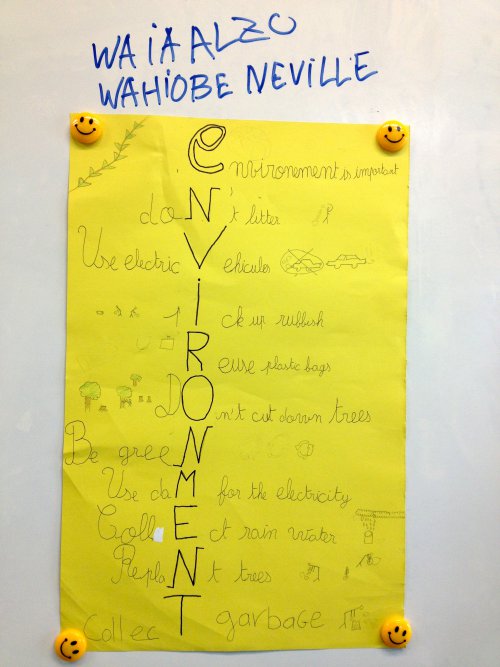 WAiA ALZO
WAHiOBE NEVILLE
environement is important
doN't litter
Use electric Vehicules
Pick up rubbish
Reuse plastic bags
DOn't cut down trees
Be greeN
Use daM for the electricity
CollEct rain water
ReplaNt trees
CollecT garbage